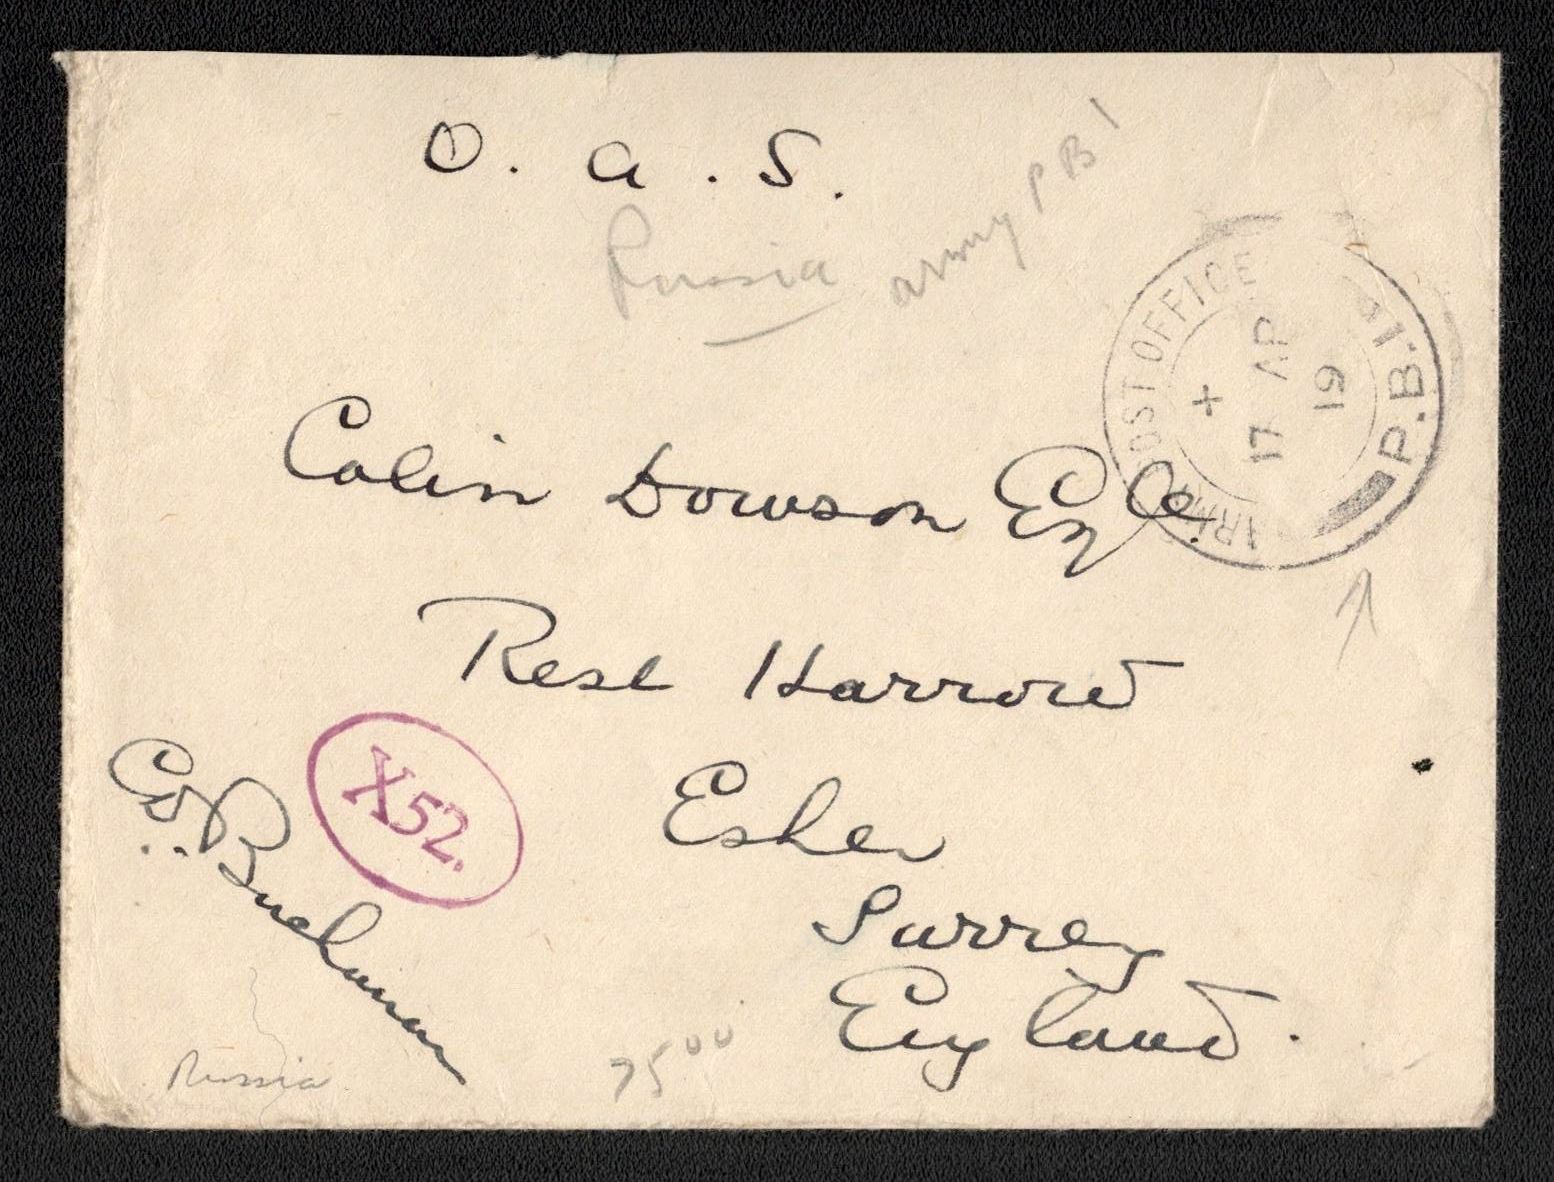 O. A. S.
Russia
army P B 1
ARMY POST OFFICE
P.B.1.
+
17 AP
19
Colin Dowson Esqre.
Rest Harrow
Esher
Surrey
England.
X52.
Buchanan
Russia
75 00